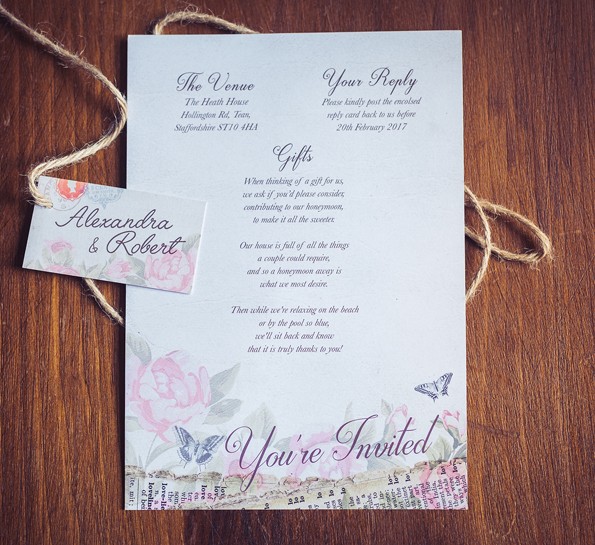 The Venue
The Heath House
Hollington Rd, Tean,
Staffordshire ST10 4HA
Your Reply
Please kindly post the encolsed
reply card back to us before
20th February 2017
Gifts
When thinking of a gift for us,
we ask if you'd please consider,
contributing to our honeymoon,
to make it all the sweeter.
Our house is full of all the things
a couple could require,
and so a honeymoon away is
what we most desire.
Then while we're relaxing on the beach
or by the pool so blue,
we'll sit back and know
that it is truly thanks to you!
Alexandra
& Robert
You're Invited